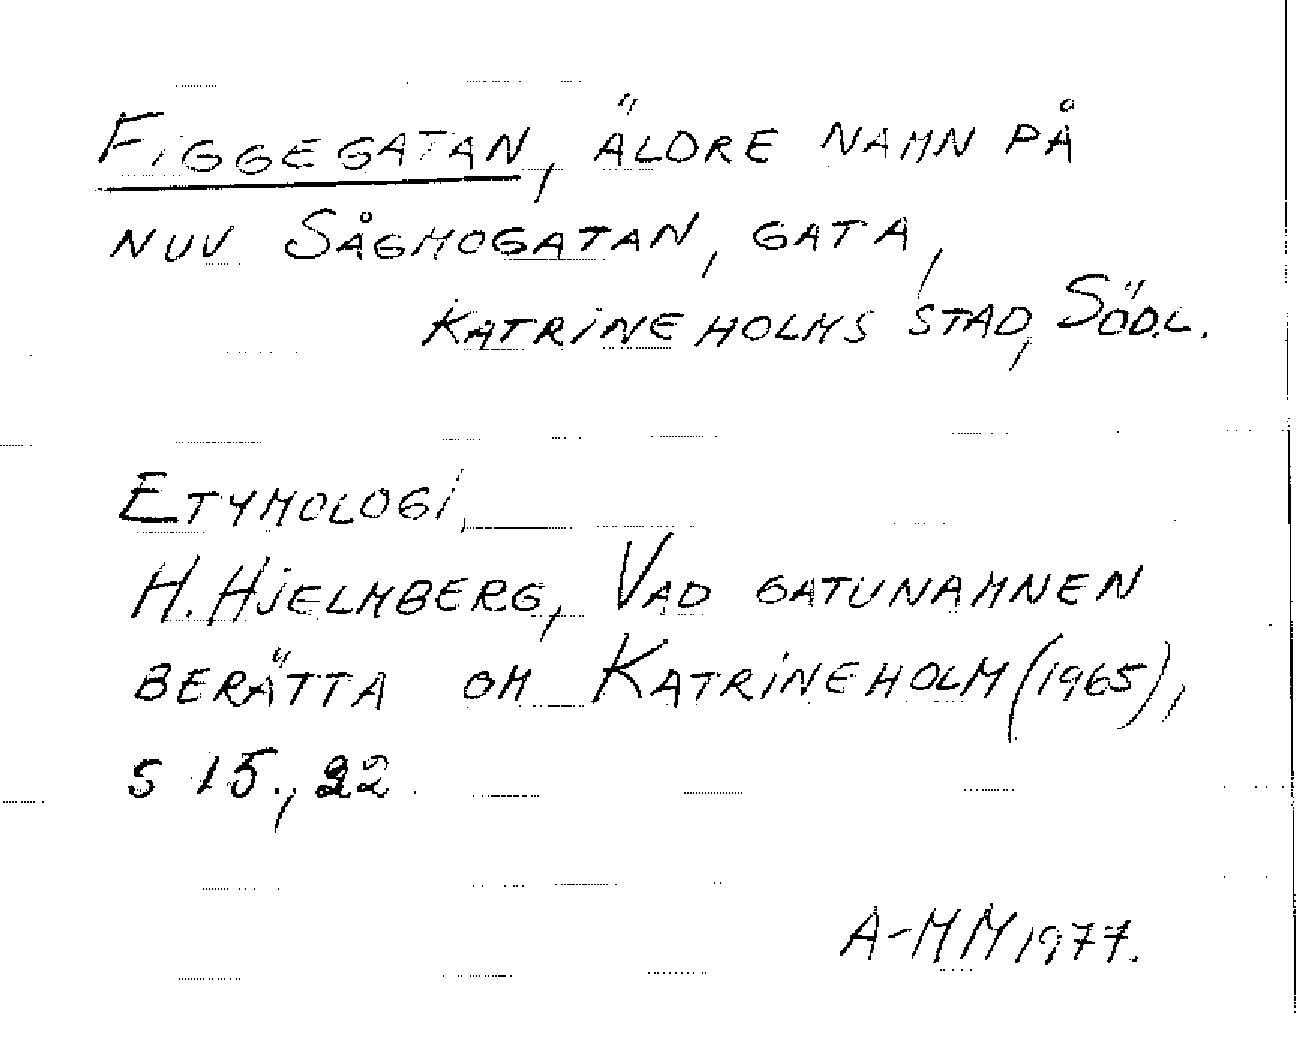 FIGGEGATAN, ÄLDRE NAMN PÅ
NUV SÅGMOGATAN, GATA,
KATRINEHOLMS STAD, SÖDL.
ETYMOLOGI.
H. HJELMBERG, VAD GATUNAMNEN
BERÄTTA OM KATRINEHOLM (1965),
S 15., 22.
A-MM 1977.